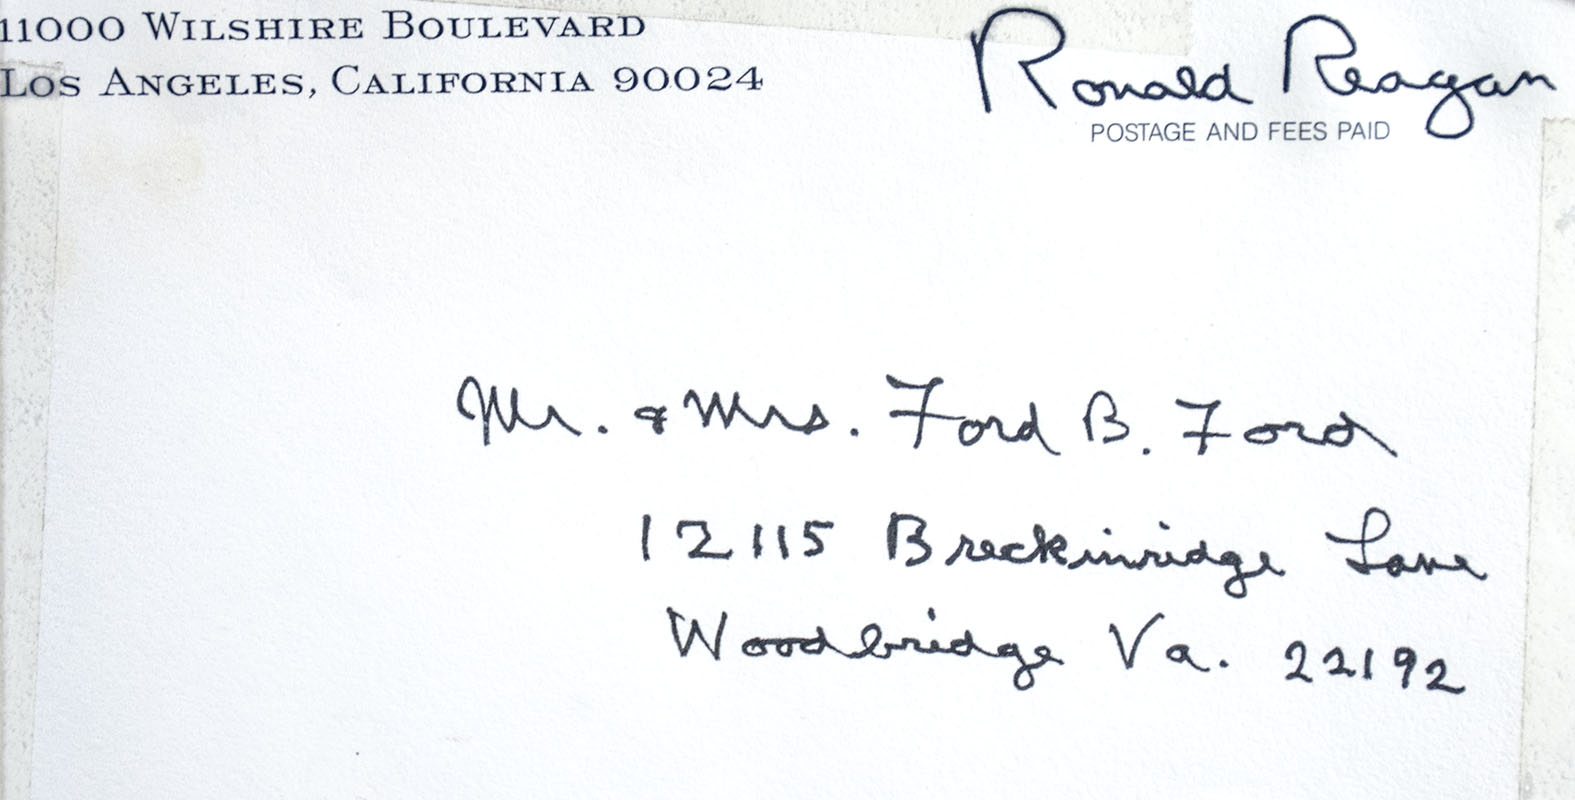 11000 WILSHIRE BOULEVARD
LOS ANGELES, CALIFORNIA 90024
Ronald Reagan
POSTAGE AND FEES PAID
Mr. & Mrs. Ford B. Ford
12115 Breckinridge Lane
Woodbridge Va. 22192